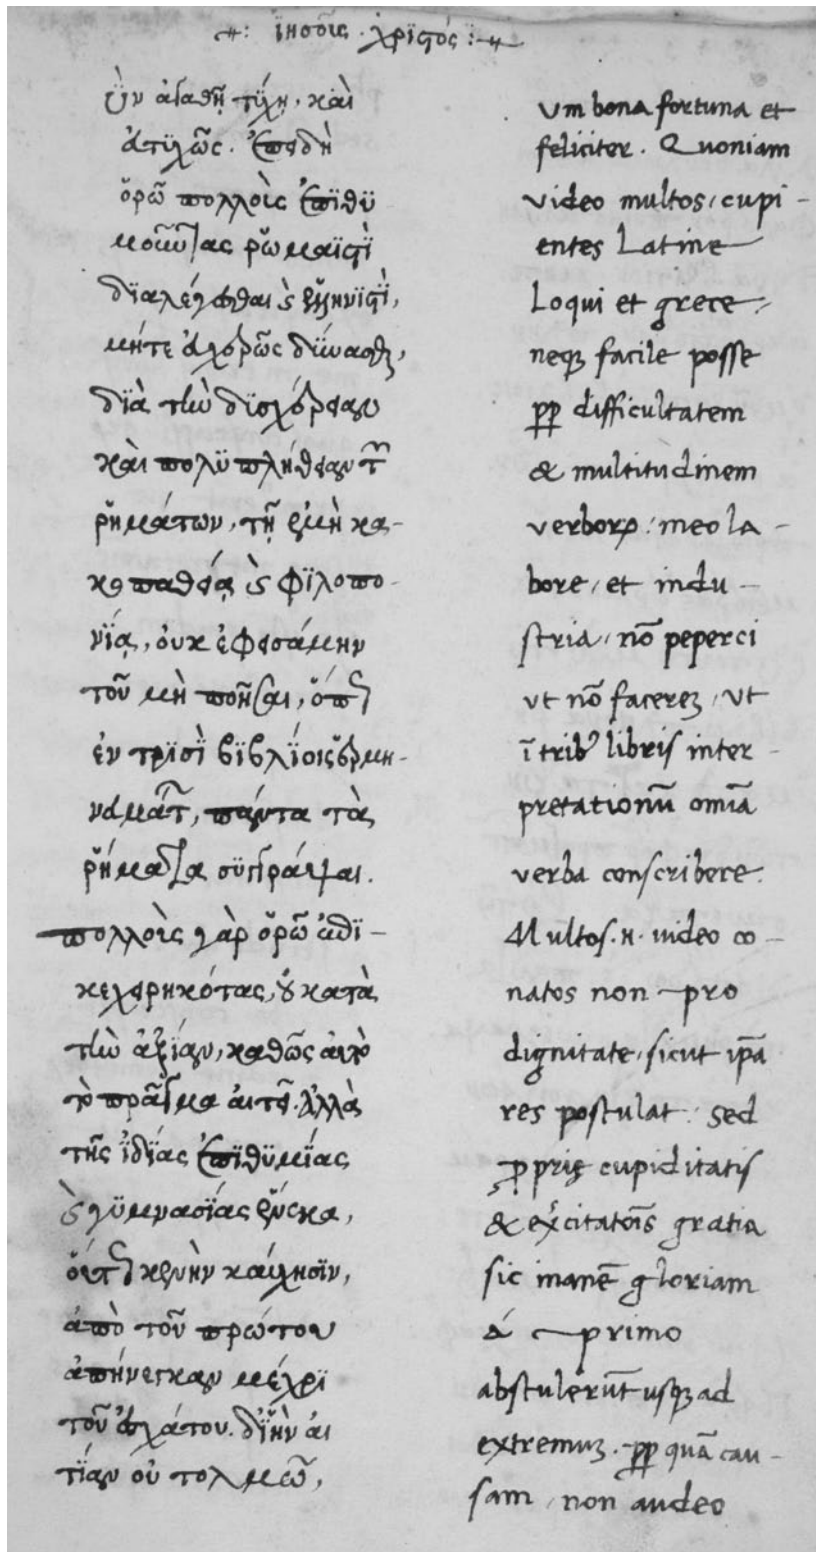 ἰησοῦς · χριστός :
ὺν ἀγαθῇ τύχῃ, καὶ
εὐτυχῶς. ἐπειδὴ
ὁρῶ πολλοὺς ἐπιθυ
μοῦντας ῥωμαϊστὶ
διαλέγεσθαι καὶ ἑλληνιστί,
μήτε εὐχερῶς δύνασθαι,
διὰ τὴν δυσχέρειαν
καὶ πολυπλήθειαν τῶν
ῥημάτων, τῇ ἐμῇ κα-
κοπαθείᾳ καὶ φιλοπο-
νίᾳ, οὐκ ἐφεισάμην
τοῦ μὴ ποιῆσαι, ὅπως
ἐν τρισὶ βιβλίοις ἑρμη-
νευμάτων, πάντα τὰ
ῥήματα συγγράψαι.
πολλοὺς γὰρ ὁρῶ ἐπι-
κεχειρηκότας, οὐ κατὰ
τὴν ἀξίαν, καθὼς αὐτὸ
τὸ πρᾶγμα αἰτεῖ. ἀλλὰ
τῆς ἰδίας ἐπιθυμίας
καὶ γυμνασίας ἕνεκα,
οὕτως κενὴν καύχησιν,
ἀπὸ τοῦ πρώτου
ἀπήνεγκαν μέχρι
τοῦ ἐσχάτου. δι' ἣν αἰ
τίαν οὐ τολμῶ,
um bona fortuna et
feliciter. Quoniam
video multos, cupi-
entes Latine
Loqui et grece,
neqꝫ facile posse
ꝓꝑ difficultatem
& multitudinem
verborꝝ, meo la-
bore, et indu-
stria, nō peperci
ut nō facereꝫ, ut
ī tribꝰ libris inter-
pretationū omīa
verba conscribere.
Multos .n. video co-
natos non pro
dignitate, sicut ip̄a
res postulat. sed
ꝓprię cupiditatis
& exercitatiōis gratia
sic inanē gloriam
á primo
abstulerūt usqꝫ ad
extremuꝫ. ꝓꝑ quā cau-
sam, non audeo